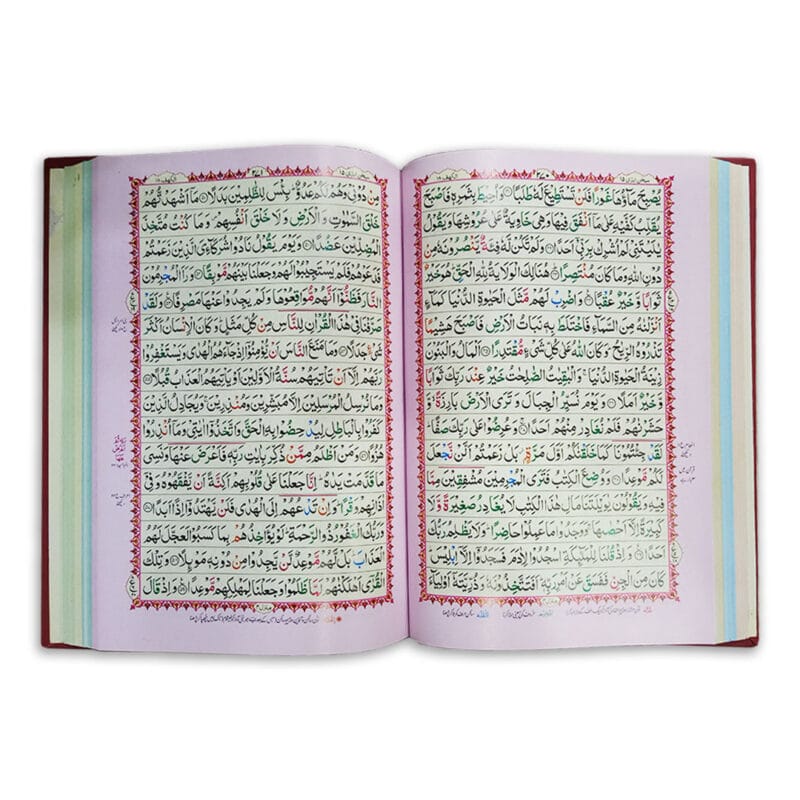 يُصْبِحَ مَآؤُهَا غَوْرًا فَلَنْ تَسْتَطِيْعَ لَهٗ طَلَبًا ۝ وَاُحِيْطَ بِثَمَرِهٖ فَاَصْبَحَ
يُقَلِّبُ كَفَّيْهِ عَلٰى مَآ اَنْفَقَ فِيْهَا وَهِيَ خَاوِيَةٌ عَلٰى عُرُوْشِهَا وَيَقُوْلُ
يٰلَيْتَنِيْ لَمْ اُشْرِكْ بِرَبِّيْٓ اَحَدًا ۝ وَلَمْ تَكُنْ لَّهٗ فِئَةٌ يَّنْصُرُوْنَهٗ مِنْ
دُوْنِ اللّٰهِ وَمَا كَانَ مُنْتَصِرًا ۝ هُنَالِكَ الْوَلَايَةُ لِلّٰهِ الْحَقِّ هُوَ خَيْرٌ
ثَوَابًا وَّخَيْرٌ عُقْبًا ۝ وَاضْرِبْ لَهُمْ مَّثَلَ الْحَيٰوةِ الدُّنْيَا كَمَآءٍ
اَنْزَلْنٰهُ مِنَ السَّمَآءِ فَاخْتَلَطَ بِهٖ نَبَاتُ الْاَرْضِ فَاَصْبَحَ هَشِيْمًا
تَذْرُوْهُ الرِّيٰحُ وَكَانَ اللّٰهُ عَلٰى كُلِّ شَيْءٍ مُّقْتَدِرًا ۝ اَلْمَالُ وَالْبَنُوْنَ
زِيْنَةُ الْحَيٰوةِ الدُّنْيَا وَالْبٰقِيٰتُ الصّٰلِحٰتُ خَيْرٌ عِنْدَ رَبِّكَ ثَوَابًا
وَّخَيْرٌ اَمَلًا ۝ وَيَوْمَ نُسَيِّرُ الْجِبَالَ وَتَرَى الْاَرْضَ بَارِزَةً وَّ
حَشَرْنٰهُمْ فَلَمْ نُغَادِرْ مِنْهُمْ اَحَدًا ۝ وَعُرِضُوْا عَلٰى رَبِّكَ صَفًّا
لَقَدْ جِئْتُمُوْنَا كَمَا خَلَقْنٰكُمْ اَوَّلَ مَرَّةٍۢ بَلْ زَعَمْتُمْ اَلَّنْ نَّجْعَلَ
لَكُمْ مَّوْعِدًا ۝ وَوُضِعَ الْكِتٰبُ فَتَرَى الْمُجْرِمِيْنَ مُشْفِقِيْنَ مِمَّا
فِيْهِ وَيَقُوْلُوْنَ يٰوَيْلَتَنَا مَالِ هٰذَا الْكِتٰبِ لَا يُغَادِرُ صَغِيْرَةً وَّلَا
كَبِيْرَةً اِلَّآ اَحْصٰىهَا وَوَجَدُوْا مَا عَمِلُوْا حَاضِرًا وَلَا يَظْلِمُ رَبُّكَ
اَحَدًا ۝ وَاِذْ قُلْنَا لِلْمَلٰٓئِكَةِ اسْجُدُوْا لِاٰدَمَ فَسَجَدُوْٓا اِلَّآ اِبْلِيْسَ
كَانَ مِنَ الْجِنِّ فَفَسَقَ عَنْ اَمْرِ رَبِّهٖ اَفَتَتَّخِذُوْنَهٗ وَذُرِّيَّتَهٗٓ اَوْلِيَآءَ
مِنْ دُوْنِيْ وَهُمْ لَكُمْ عَدُوٌّ بِئْسَ لِلظّٰلِمِيْنَ بَدَلًا ۝ مَآ اَشْهَدْتُّهُمْ
خَلْقَ السَّمٰوٰتِ وَالْاَرْضِ وَلَا خَلْقَ اَنْفُسِهِمْ وَمَا كُنْتُ مُتَّخِذَ
الْمُضِلِّيْنَ عَضُدًا ۝ وَيَوْمَ يَقُوْلُ نَادُوْا شُرَكَآءِيَ الَّذِيْنَ زَعَمْتُمْ
فَدَعَوْهُمْ فَلَمْ يَسْتَجِيْبُوْا لَهُمْ وَجَعَلْنَا بَيْنَهُمْ مَّوْبِقًا ۝ وَرَاَ الْمُجْرِمُوْنَ
النَّارَ فَظَنُّوْٓا اَنَّهُمْ مُّوَاقِعُوْهَا وَلَمْ يَجِدُوْا عَنْهَا مَصْرِفًا ۝ وَلَقَدْ
صَرَّفْنَا فِيْ هٰذَا الْقُرْاٰنِ لِلنَّاسِ مِنْ كُلِّ مَثَلٍ وَكَانَ الْاِنْسَانُ اَكْثَرَ
شَيْءٍ جَدَلًا ۝ وَمَا مَنَعَ النَّاسَ اَنْ يُّؤْمِنُوْٓا اِذْ جَآءَهُمُ الْهُدٰى وَيَسْتَغْفِرُوْا
رَبَّهُمْ اِلَّآ اَنْ تَاْتِيَهُمْ سُنَّةُ الْاَوَّلِيْنَ اَوْ يَاْتِيَهُمُ الْعَذَابُ قُبُلًا ۝
وَمَا نُرْسِلُ الْمُرْسَلِيْنَ اِلَّا مُبَشِّرِيْنَ وَمُنْذِرِيْنَ وَيُجَادِلُ الَّذِيْنَ
كَفَرُوْا بِالْبَاطِلِ لِيُدْحِضُوْا بِهِ الْحَقَّ وَاتَّخَذُوْٓا اٰيٰتِيْ وَمَآ اُنْذِرُوْا
هُزُوًا ۝ وَمَنْ اَظْلَمُ مِمَّنْ ذُكِّرَ بِاٰيٰتِ رَبِّهٖ فَاَعْرَضَ عَنْهَا وَنَسِيَ
مَا قَدَّمَتْ يَدٰهُ اِنَّا جَعَلْنَا عَلٰى قُلُوْبِهِمْ اَكِنَّةً اَنْ يَّفْقَهُوْهُ وَفِيْٓ
اٰذَانِهِمْ وَقْرًا وَاِنْ تَدْعُهُمْ اِلَى الْهُدٰى فَلَنْ يَّهْتَدُوْٓا اِذًا اَبَدًا ۝ وَ
رَبُّكَ الْغَفُوْرُ ذُو الرَّحْمَةِ لَوْ يُؤَاخِذُهُمْ بِمَا كَسَبُوْا لَعَجَّلَ لَهُمُ
الْعَذَابَ بَلْ لَّهُمْ مَّوْعِدٌ لَّنْ يَّجِدُوْا مِنْ دُوْنِهٖ مَوْئِلًا ۝ وَتِلْكَ
الْقُرٰٓى اَهْلَكْنٰهُمْ لَمَّا ظَلَمُوْا وَجَعَلْنَا لِمَهْلِكِهِمْ مَّوْعِدًا ۝ وَاِذْ قَالَ